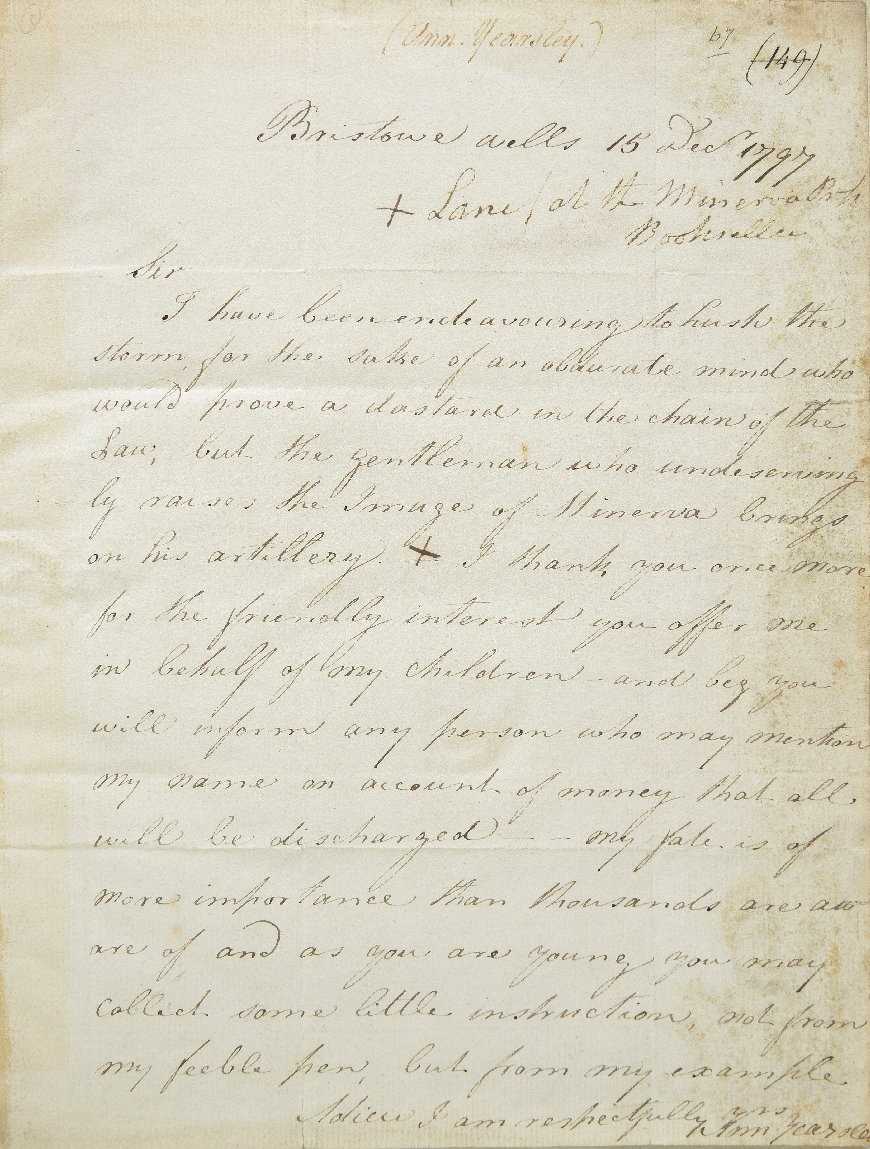 (Ann. Yearsley.)
67
(149)
Bristowe wells 15 Decr 1797
+ Lane / at the Minerva
Bookseller
Sir
I have been endeavouring to hush the
storm, for the sake of an obdurate mind who
would prove a dastard in the chain of the
Law, but the gentleman who undeserving
ly raises the Image of Minerva brings
on his artillery. + I thank you once more
for the friendly interest you offer me
in behalf of my children - and beg you
will inform any person who may mention
my name on account of money that all
will be discharged - - my fate is of
more importance than thousands are aw
are of and as you are young you may
collect some little instruction, not from
my feeble pen, but from my example
Adieu I am respectfully yrs
Ann Yearsley